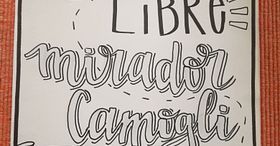 LIBRE
mirador
Camogli